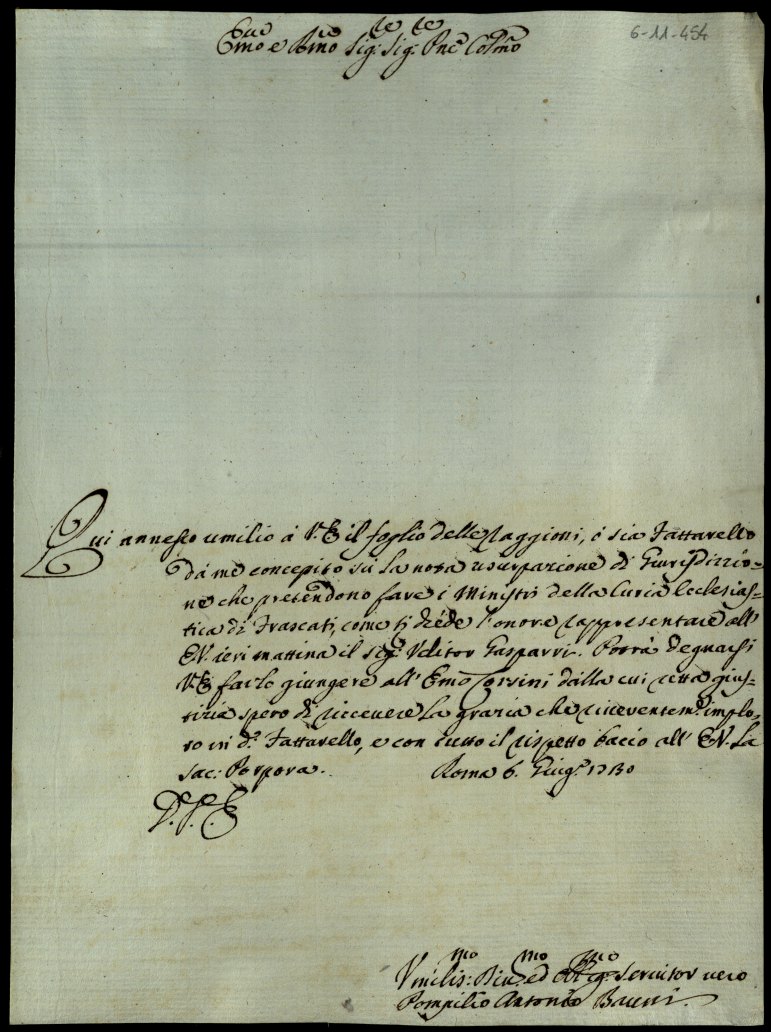 6-11-454
Emo e Rmo Sig: Sig: Pne Colmo
Qui annesso umilio á V.E il foglio delle Raggioni, ó sia Fattarello
da me concepito sú la nota usurpazione di Giurisdizzio-
ne che pretendono fare i Ministri della Curia Ecclesias-
tica di Frascati, come si diede l'onore rappresentare all'
E.V. ieri mattina il Sig.r Uditor Gasparri. Potrà degnarsi
V.E farlo giungere all' Emo Corsini dalla cui retta gius-
tizia spero di riccevere la grazia che riceventem.e implo-
ro in d.o Fattarello, e con tutto il rispetto bacio all' E.V. la
Sac: Porpora. Roma 6. Giug.o 1730
D.V.E
Vmilis:mo Div:mo ed Oblig:mo Servitor vero
Pompilio Antonio